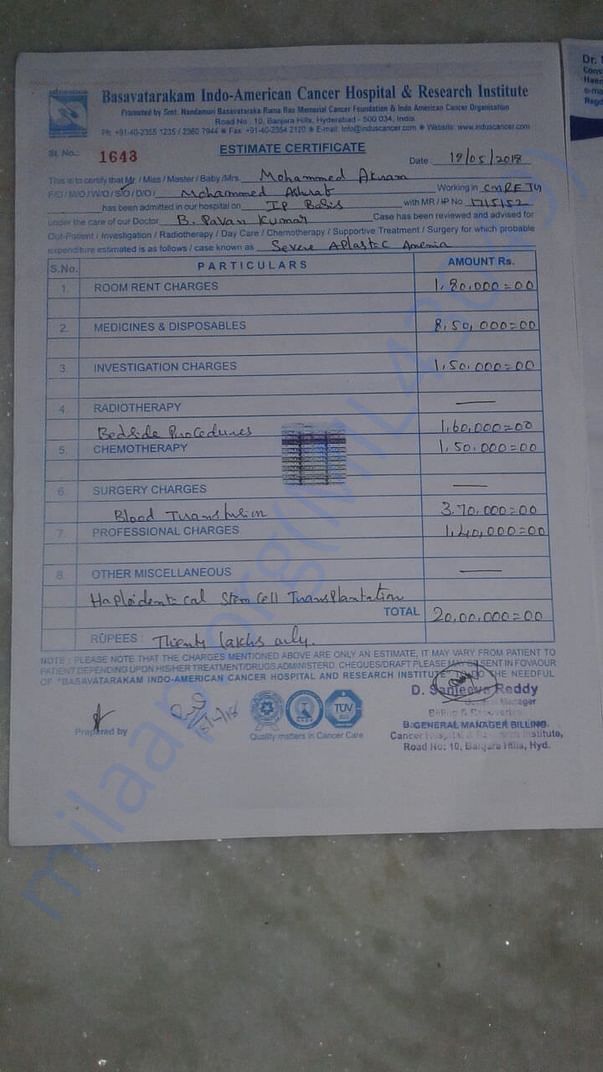 Basavatarakam Indo-American Cancer Hospital & Research Institute
Promoted by Smt. Nandamuri Basavatataraka Rama Rao Memorial Cancer Foundation & Indo American Cancer Organisation
Road No. 10, Banjara Hills, Hyderabad - 500 034, India
Ph: +91-40-2355 1235 / 2360 7944 Fax +91-40-2354 2120 E-mail: info@induscancer.com Website: www.induscancer.com
ESTIMATE CERTIFICATE
Sl. No.: 1643
Date : 19/05/2018
This is to certify that Mr. / Miss / Master / Baby /Mrs. Mohammed Akram
F/O / M/O / W/O / S/O / D/O / Mohammed Working in
has been admitted in our hospital on IP Basis with MR / IP No.
under the care of our Doctor B. Pavan Kumar Case has been reviewed and advised for
Out-Patient / Investigation / Radiotherapy / Day Care / Chemotherapy / Supportive Treatment / Surgery for which probable
expenditure estimated is as follows / case known as Severe Aplastic Anemia
S.No. PARTICULARS AMOUNT Rs.
1. ROOM RENT CHARGES 1,80,000=00
2. MEDICINES & DISPOSABLES 8,50,000=00
3. INVESTIGATION CHARGES 1,50,000=00
4. RADIOTHERAPY —
Bedside Procedures 1,60,000=00
5. CHEMOTHERAPY 1,50,000=00
6. SURGERY CHARGES —
Blood Transfusion 3,70,000=00
7. PROFESSIONAL CHARGES 1,40,000=00
8. OTHER MISCELLANEOUS —
Haploidentical Stem Cell Transplantation
TOTAL 20,00,000=00
RUPEES : lakhs only.
NOTE : PLEASE NOTE THAT THE CHARGES MENTIONED ABOVE ARE ONLY AN ESTIMATE, IT MAY VARY FROM PATIENT TO
PATIENT DEPENDING UPON HIS/HER TREATMENT/DRUGS ADMINISTERD. CHEQUES/DRAFT PLEASE MAY BE SENT IN FOVAOUR
OF "BASAVATARAKAM INDO-AMERICAN CANCER HOSPITAL AND RESEARCH INSTITUTE" TO DO THE NEEDFUL
D. Sanjeeva Reddy
General Manager
Billing &
Prepared by
TUV
Quality matters in Cancer Care
GENERAL MANAGER BILLING.
Cancer Hospital & Research Institute,
Road No: 10, Banjara Hills, Hyd.
Dr.
Cons
e-ma
Regd